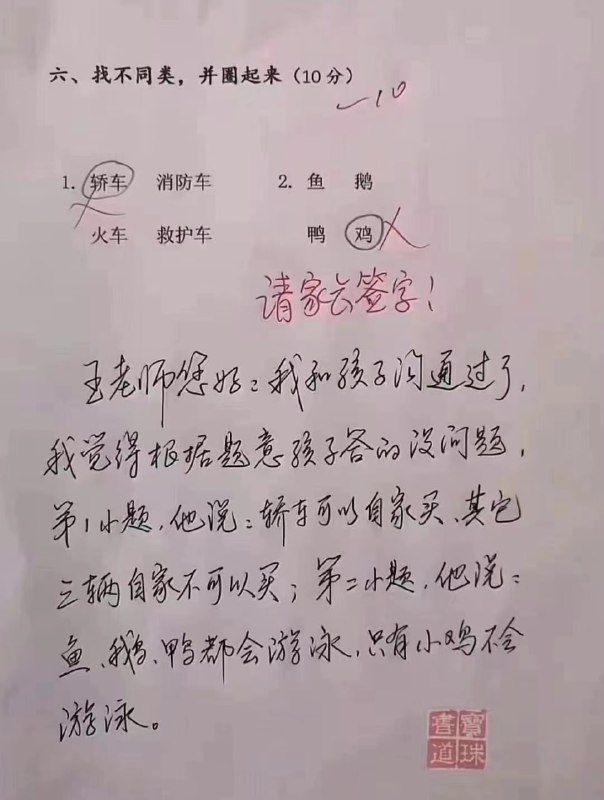 六、找不同类，并圈起来（10分）
-10
1. 轿车 消防车 2. 鱼 鹅
火车 救护车 鸭 鸡
请家长签字！
王老师您好：我和孩子沟通过了，
我觉得根据题意孩子答的没问题，
第1小题，他说：轿车可以自家买、其它
三辆自家不可以买；第二小题，他说：
鱼、鹅、鸭都会游泳，只有小鸡不会
游泳。
寶珠書道